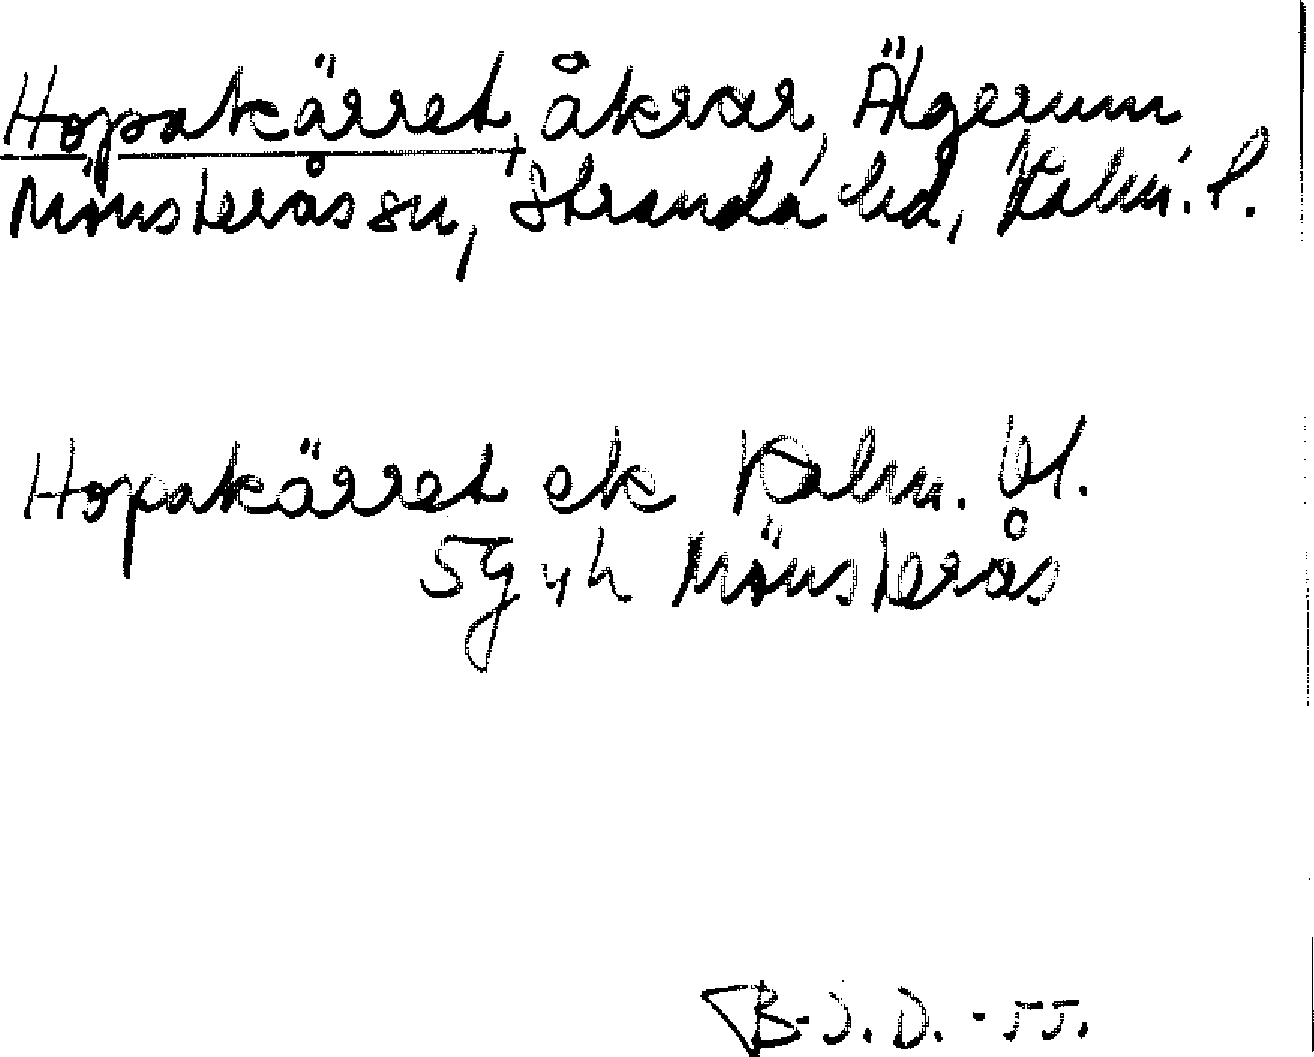 Hopakärret, åkrar, Älgerum
Mönsterås sn, Stranda hd, Kalm. l.
Hopakärret ek Kalm. Vl.
5g4h Mönsterås
B-J.D. -55.